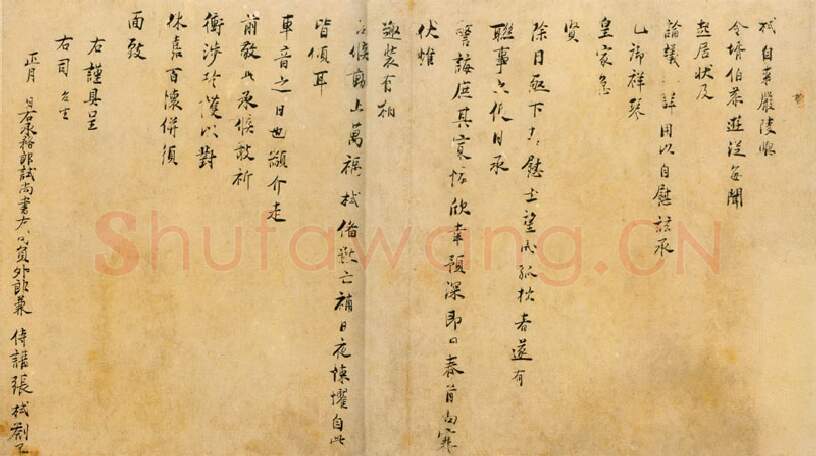 栻自來嚴陵
令婿伯恭遊從每聞
起居狀及
論議一詳用以自慰茲承
已御祥琴
皇家急
賢
除目亟下大慰士望而孤拙者遂有
聯事之便日承
警誨庶其寡悔欣幸預深即日春首尚寒
伏惟
趣裝有相
台候動止萬福栻備數亡補日夜悚懼自此
皆傾耳
車音之日也顓介走
前敬此承候敢祈
衝涉珍護以對
休嘉百懷併須
面致
右謹具呈
右司台坐
正月日右承務郎試尚書左司員外郎兼侍講張栻劄子
Shufawang.CN